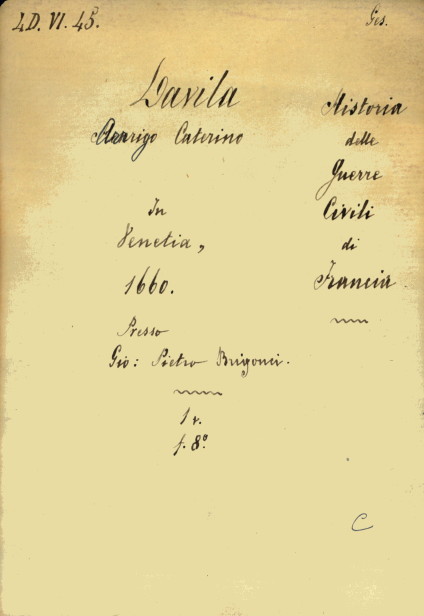 4D. VI. 45.
Ges.
Davila
Arrigo Caterino
Historia
delle
Guerre
Civili
di
Francia
In
Venetia,
1660.
Presso
Gio: Pietro Brigonci.
1 v.
f. 8º
C